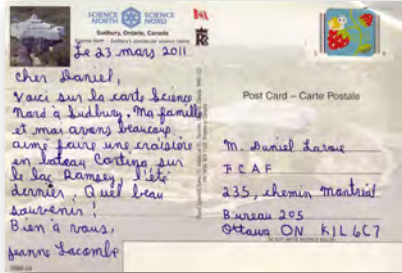 SCIENCE NORTH
SCIENCE NORD
Sudbury, Ontario, Canada
Le 23 mars 2011
cher Daniel,
Voici sur la carte Science
Nord à Sudbury. Ma famille
et moi avons beaucoup
aimé faire une croisière
en bateau Cortina sur
le lac Ramsey, l'été
dernier. Quel beau
souvenir !
Bien à vous,
Jeanne Lacombe
Post Card – Carte Postale
M. Daniel Lavoie
FCAF
235, chemin Montréal
Bureau 205
Ottawa ON K1L 6C7